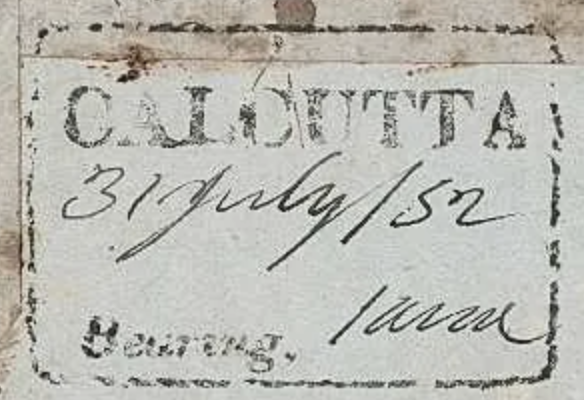 CALCUTTA
31 July/52
Bearing,